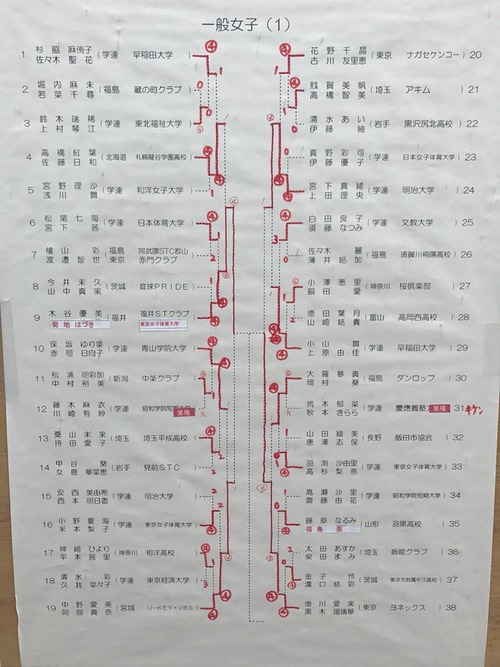 一般女子（1）
1 杉脇 麻侑子 (学連 早稲田大学)
佐々木 聖花
2 堀内 麻未 (福島 蔵の町クラブ)
若菜 千尋
3 鈴木 瑞稀 (学連 東北福祉大学)
上村 琴江
4 高橋 紅葉 (北海道 札幌龍谷学園高校)
佐藤 日和
5 宮野 理沙 (学連 和洋女子大学)
浅川 舞
6 松尾 七海 (学連 日本体育大学)
宮下 茜
7 檜山 彩 (福島 阿武隈STC郡山
渡邉 智世 東京 赤門クラブ)
8 今井 未久 (茨城 籠球PRIDE)
山中 真実
9 木谷 優美 (福井 福井STクラブ)
菊地 はづき 東京女子体育大学
10 保坂 ゆり菜 (学連 青山学院大学)
赤司 日向子
11 松浦 明彩加 (新潟 中条クラブ)
中村 裕美
12 藤木 麻衣 (学連 昭和学院短期大学)
川崎 有紗 棄権
13 桑山 未来 (埼玉 埼玉平成高校)
持田 愛子
14 甲谷 葵 (岩手 見前STC)
女鹿 華菜恵
15 安西 美由希 (学連 明治大学)
西本 明日香
16 小野 夏海 (学連 東京女子体育大学)
米本 梨子
17 神崎 ひより (神奈川 相洋高校)
平本 茜里
18 清水 彩 (学連 東京経済大学)
久我 菜々子
19 中野 愛美 (宮城 U-KEY-VBS)
阿部 真奈
花野 千晶 (東京 ナガセケンコー) 20
古川 友里恵
戝賀 美帆 (埼玉 アキム) 21
高橋 智美
清水 あい (岩手 黒沢尻北高校) 22
伊藤 紬
真野 彩可 (学連 日本女子体育大学) 23
伊藤 優子
宮下 真緒 (学連 明治大学) 24
上田 理央
白田 良子 (学連 文教大学) 25
須藤 なつみ
佐々木 麗 (福島 須賀川桐陽高校) 26
薄井 結加
小澤 恵里 (神奈川 桜倶楽部) 27
脇田 愛
徳田 葉月 (富山 高岡西高校) 28
山崎 結貴
小山 舞 (学連 早稲田大学) 29
上原 由佳
大槻 夢真 (福島 ダンロップ) 30
岡村 葵
荒木 郁菜 (学連 慶應義塾 棄権 31 キケン
秋本 きらら
山田 綾美 (長野 飯田市協会) 32
唐澤 志保
羽渕 沙由里 (学連 東京女子体育大学) 33
高杉 梨奈
高瀬 沙里 (学連 昭和学院短期大学) 34
齋藤 由花
藤原 なるみ (山形 羽黒高校) 35
福島 葵
太田 あすか (埼玉 飯能クラブ) 36
柴田 まみ
金子 怜 (茨城 東洋大附属牛久高校) 37
溝口 結彩
徳川 愛実 (東京 ヨネックス) 38
黒木 瑠璃華